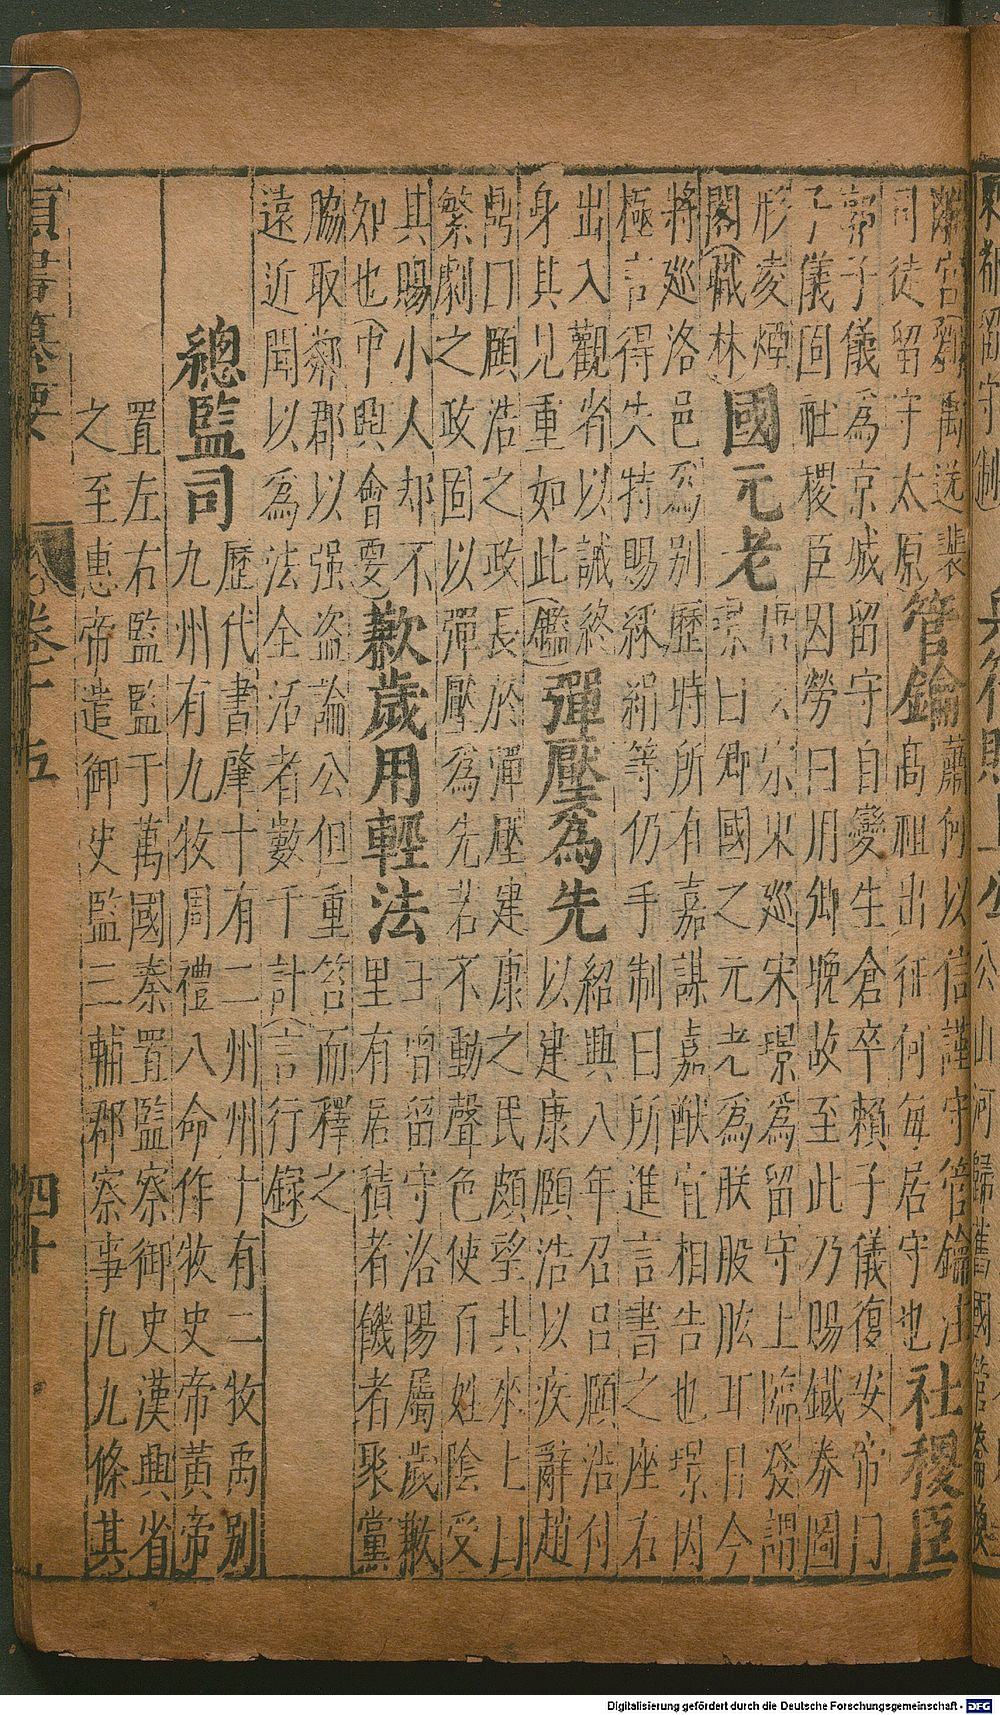 離宮(劉禹送裴
司徒留守太原)
管鑰
蕭何以信謹守管鑰注
高祖出征何每居守也
社稷臣
郭子儀為京城留守自變生倉卒賴子儀復安帝門
子儀固社稷臣因勞曰用卿晚故至此乃賜鐵券圖
形凌煙
閣(職林)
國元老
唐玄宗東巡宋璟為留守上臨發謂
璟曰卿國之元老為朕股肱耳目今
將巡洛邑為別歷時所有嘉謀嘉猷宜相告也璟因
極言得失特賜綵絹等仍手制曰所進言書之座右
出入觀省以誠終
身其見重如此(鑑)
彈壓為先
紹興八年召呂頤浩付
以建康頤浩以疾辭趙
鼎曰頤浩之政長於彈壓建康之民頗望其來上曰
繁劇之政固以彈壓為先若不動聲色使百姓陰受
其賜小人却不
知也(中興會要)
歉歲用輕法
王曾留守洛陽屬歲歉
里有居積者饑者聚黨
脇取鄰郡以强盜論公但重笞而釋之
遠近聞以為法全活者數千計(言行錄)
總監司
歷代書肇十有二州州十有二牧禹別
九州有九牧周禮八命作牧史帝黃帝
置左右監監于萬國秦置監察御史漢興省
之至惠帝遣御史監三輔郡察事凡九條其
類書纂要
卷十五
四十
Digitalisierung gefördert durch die Deutsche Forschungsgemeinschaft - DFG